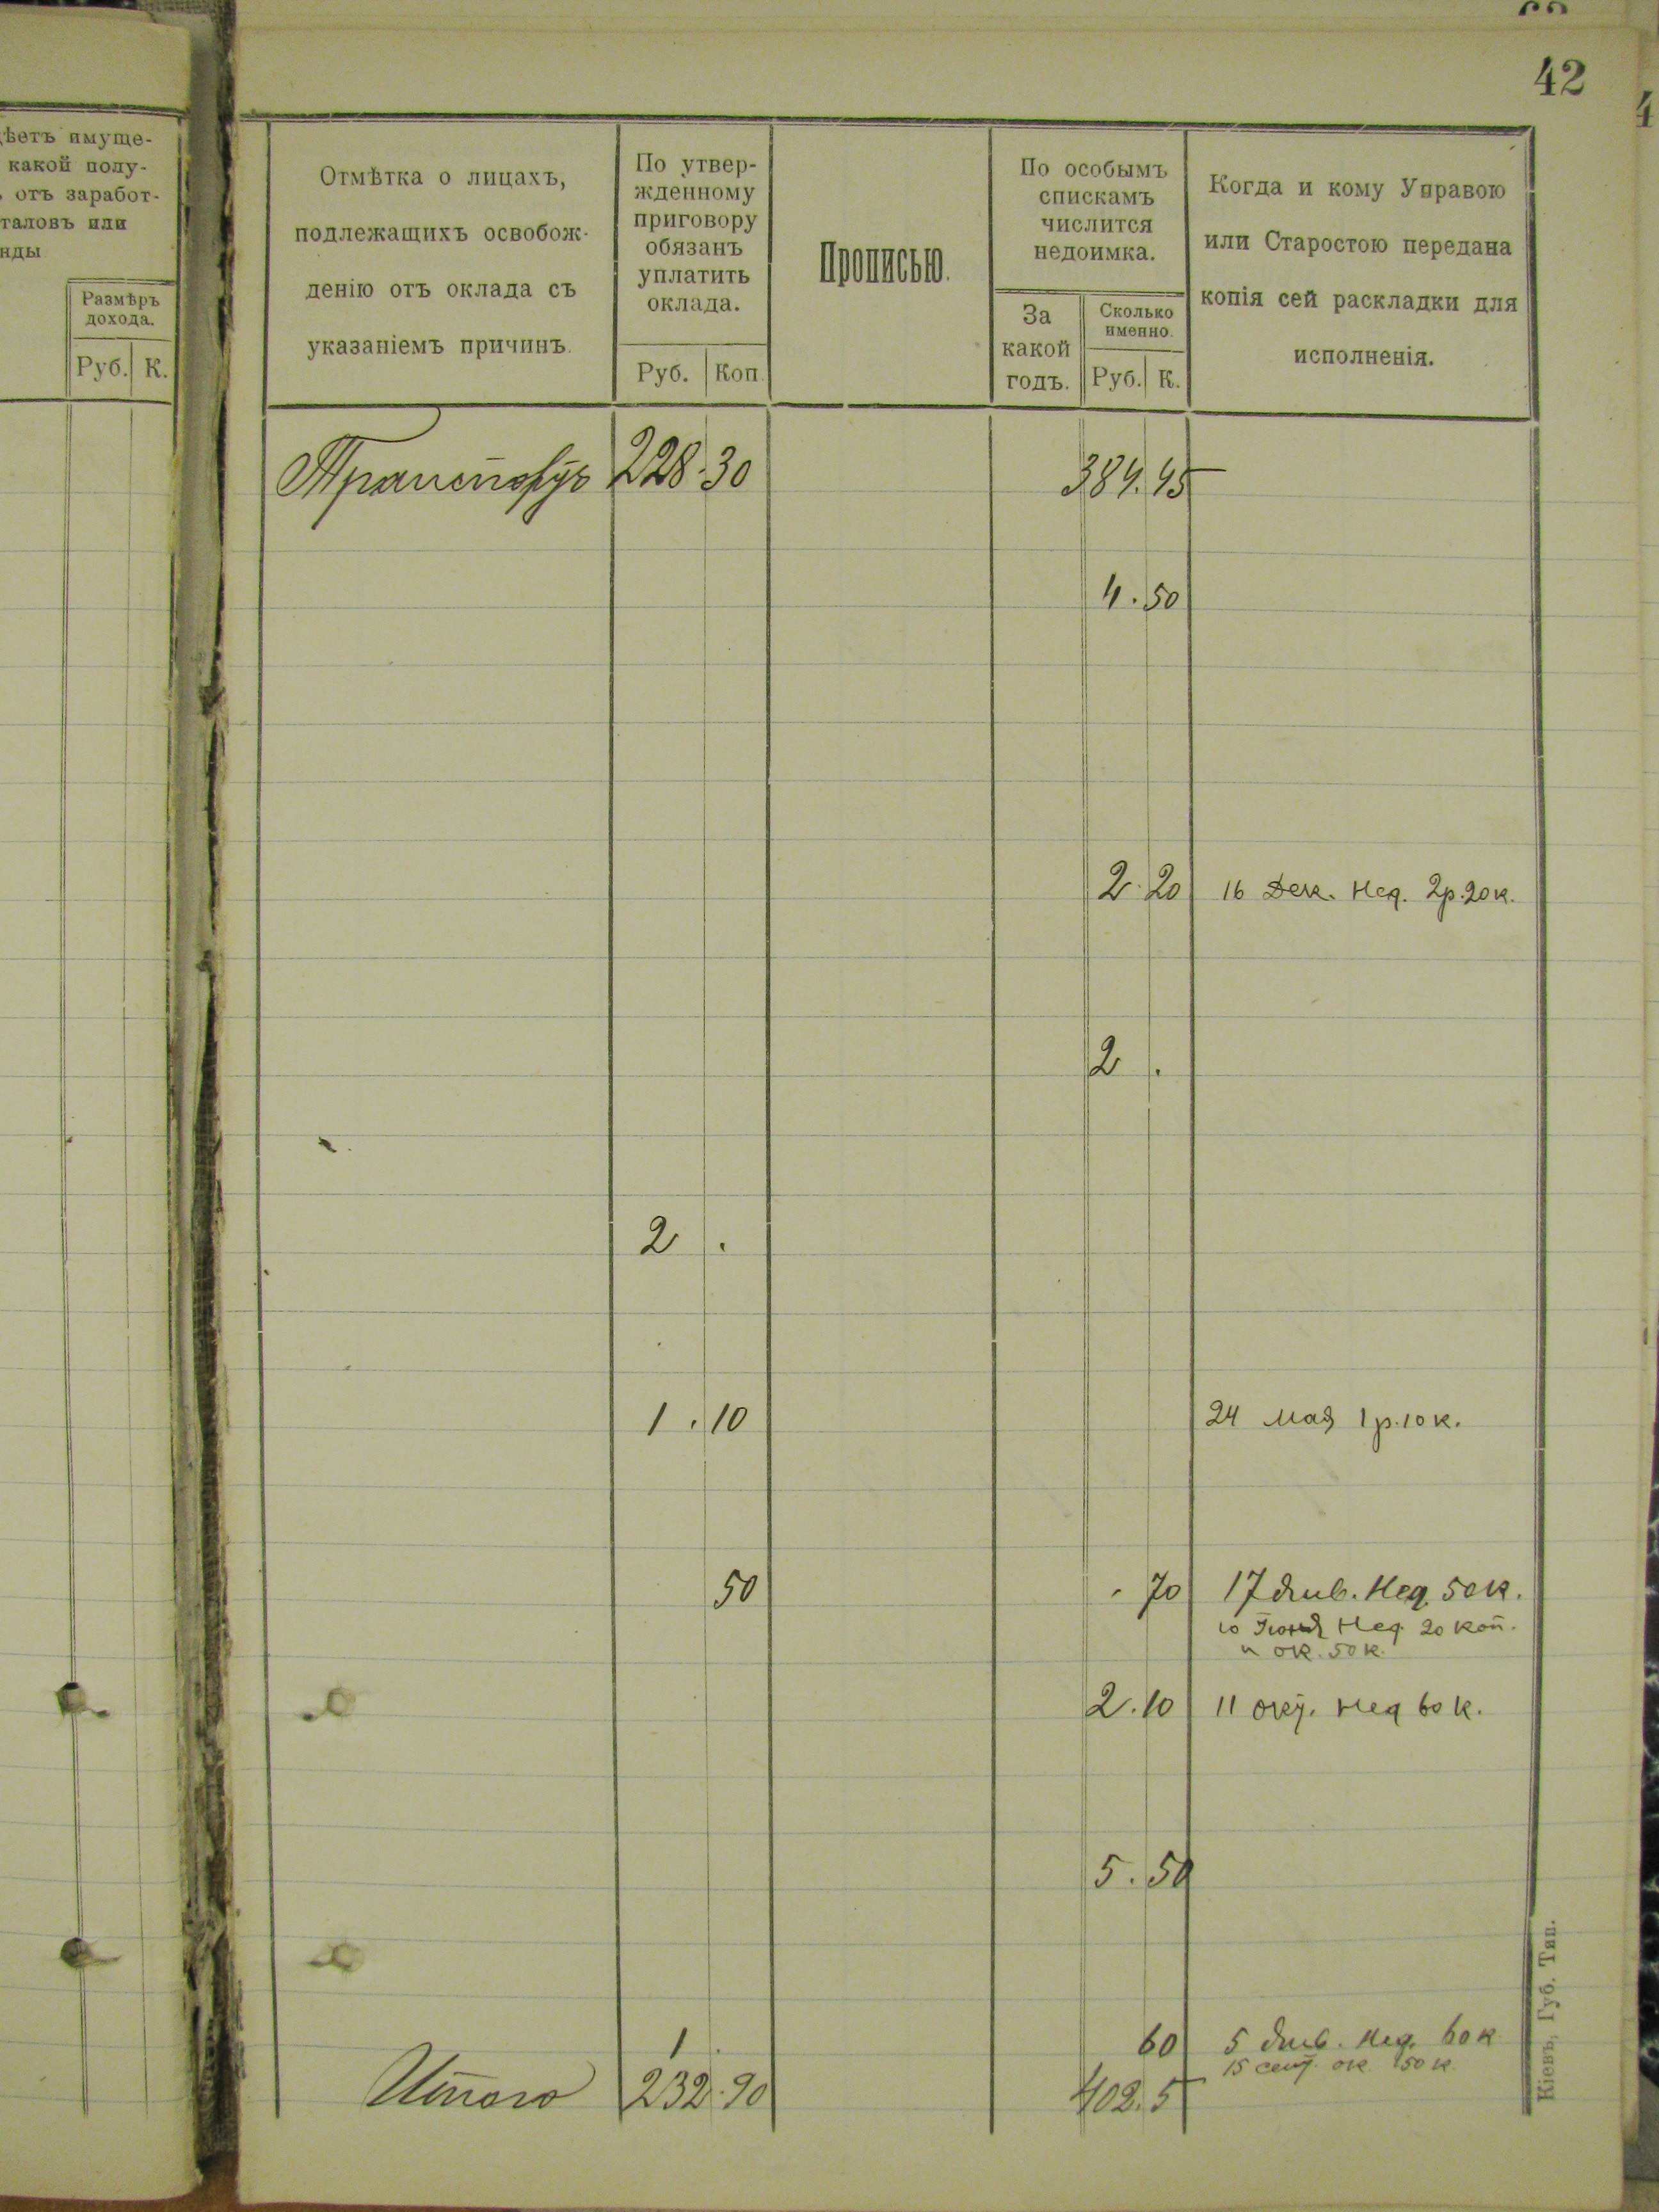 42
ѣетъ имуще-
какой полу-
отъ заработ-
таловъ или
нды
Размѣръ
дохода.
Руб. К.
Отмѣтка о лицахъ,
подлежащихъ освобож-
денію отъ оклада съ
указаніемъ причинъ.
По утвер-
жденному
приговору
обязанъ
уплатить
оклада.
Руб. Коп.
Прописью.
По особымъ
спискамъ
числится
недоимка.
За
какой
годъ.
Сколько
именно.
Руб. К.
Когда и кому Управою
или Старостою передана
копія сей раскладки для
исполненія.
Транспортъ 228.30 384.45
4.50
2.20 16 Дек. Нед. 2р.20к.
2 .
2 .
1.10 24 мая 1р.10к.
50 70 17 Янв. Нед. 50к.
10 Іюня Нед. 20 коп.
и ок. 50к.
2.10 11 окт. Нед 60к.
5.50
1 . 60 5 Янв. Нед. 60к
15 сент. ок 50к
Итого 232.90 402.5
Кіевъ, Губ. Тип.